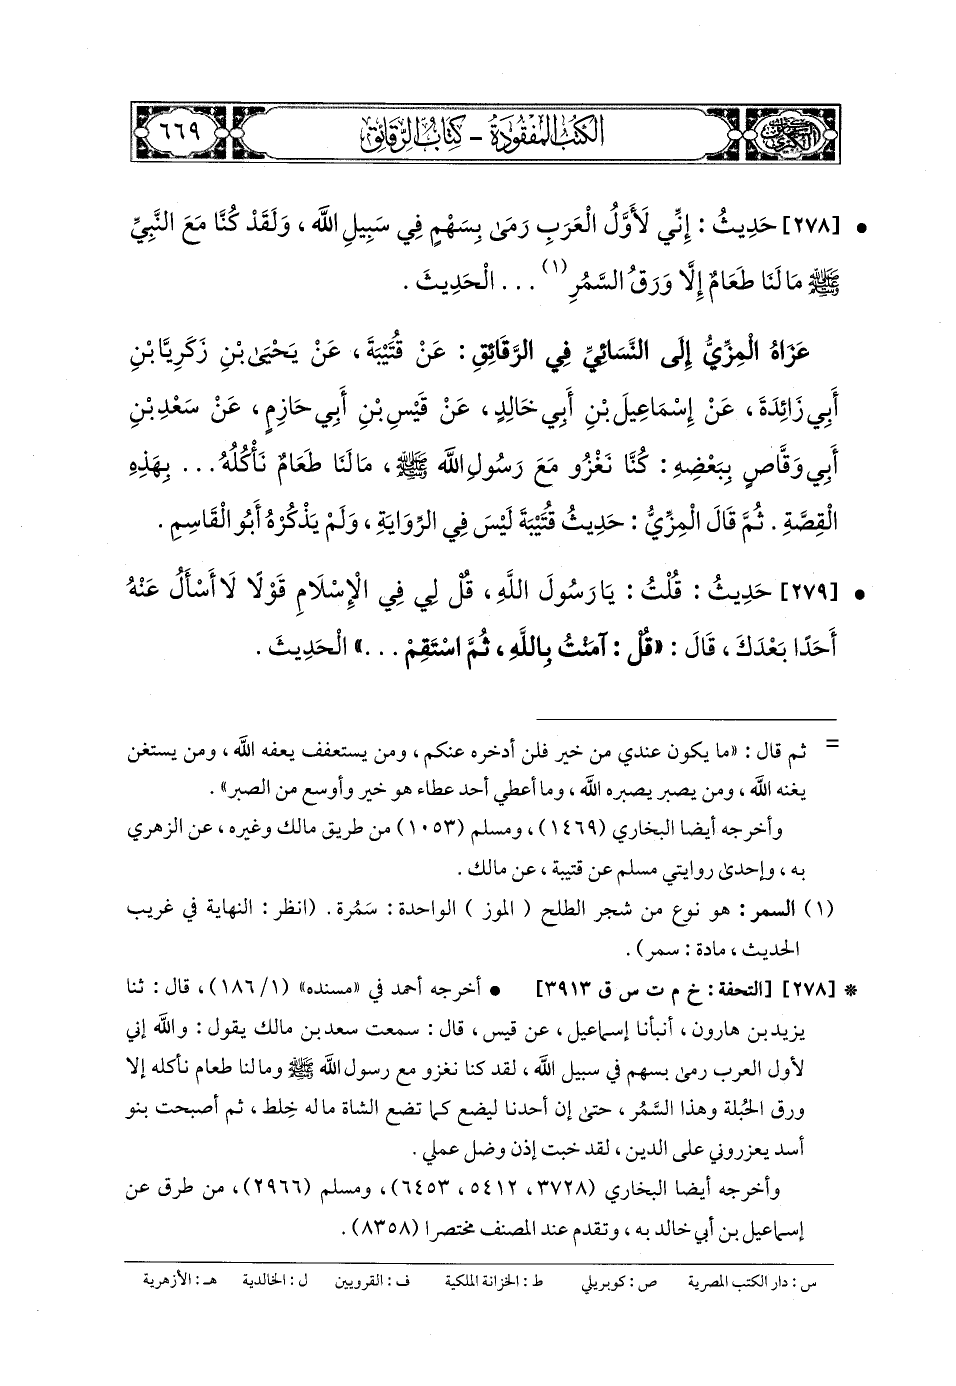 السنن الكبرى
الكتب المفقودة - كتاب الرقائق
٦٦٩
• [٢٧٨] حَدِيثُ : إِنِّي لَأَوَّلُ الْعَرَبِ رَمَى بِسَهْمٍ فِي سَبِيلِ اللَّه ، وَلَقَدْ كُنَّا مَعَ النَّبِيِّ
ﷺ مَا لَنَا طَعَامٌ إِلَّا وَرَقُ السَّمُرِ(١) ... الْحَدِيثَ .
عَزَاهُ الْمِزِّيُّ إِلَى النَّسَائِيِّ فِي الرَّقَائِقِ : عَنْ قُتَيْبَةَ ، عَنْ يَحْيَى بْنِ زَكَرِيَّا بْنِ
أَبِي زَائِدَةَ ، عَنْ إِسْمَاعِيلَ بْنِ أَبِي خَالِدٍ ، عَنْ قَيْسِ بْنِ أَبِي حَازِمٍ ، عَنْ سَعْدِ بْنِ
أَبِي وَقَّاصٍ بِبَعْضِهِ : كُنَّا نَغْزُو مَعَ رَسُولِ اللَّه ﷺ ، مَا لَنَا طَعَامٌ نَأْكُلُهُ ... بِهَذِهِ
الْقِصَّةِ . ثُمَّ قَالَ الْمِزِّيُّ : حَدِيثُ قُتَيْبَةَ لَيْسَ فِي الرِّوَايَةِ ، وَلَمْ يَذْكُرْهُ أَبُو الْقَاسِمِ .
• [٢٧٩] حَدِيثُ : قُلْتُ : يَا رَسُولَ اللَّهِ ، قُلْ لِي فِي الْإِسْلَامِ قَوْلًا لَا أَسْأَلُ عَنْهُ
أَحَدًا بَعْدَكَ ، قَالَ : «قُلْ : آمَنْتُ بِاللَّهِ ، ثُمَّ اسْتَقِمْ ...» الْحَدِيثَ .
= ثم قال : «ما يكون عندي من خير فلن أدخره عنكم ، ومن يستعفف يعفه الله ، ومن يستغن
يغنه الله ، ومن يصبر يصبره الله ، وما أعطي أحد عطاء هو خير وأوسع من الصبر» .
وأخرجه أيضا البخاري (١٤٦٩) ، ومسلم (١٠٥٣) من طريق مالك وغيره ، عن الزهري
به ، وإحدى روايتي مسلم عن قتيبة ، عن مالك .
(١) السمر : هو نوع من شجر الطلح ( الموز ) الواحدة : سَمُرة . (انظر : النهاية في غريب
الحديث ، مادة : سمر) .
* [٢٧٨] [التحفة : خ م ت س ق ٣٩١٣] • أخرجه أحمد في «مسنده» (١/ ١٨٦) ، قال : ثنا
يزيد بن هارون ، أنبأنا إسماعيل ، عن قيس ، قال : سمعت سعد بن مالك يقول : والله إني
لأول العرب رمى بسهم في سبيل الله ، لقد كنا نغزو مع رسول الله ﷺ وما لنا طعام نأكله إلا
ورق الحُبلة وهذا السَّمُر ، حتى إن أحدنا ليضع كما تضع الشاة ما له خِلط ، ثم أصبحت بنو
أسد يعزروني على الدين ، لقد خبت إذن وضل عملي .
وأخرجه أيضا البخاري (٣٧٢٨ ، ٥٤١٢ ، ٦٤٥٣) ، ومسلم (٢٩٦٦) ، من طرق عن
إسماعيل بن أبي خالد به ، وتقدم عند المصنف مختصرا (٨٣٥٨) .
س : دار الكتب المصرية ص : كوبريلي ط : الخزانة الملكية ف : القرويين ل : الخالدية هـ : الأزهرية